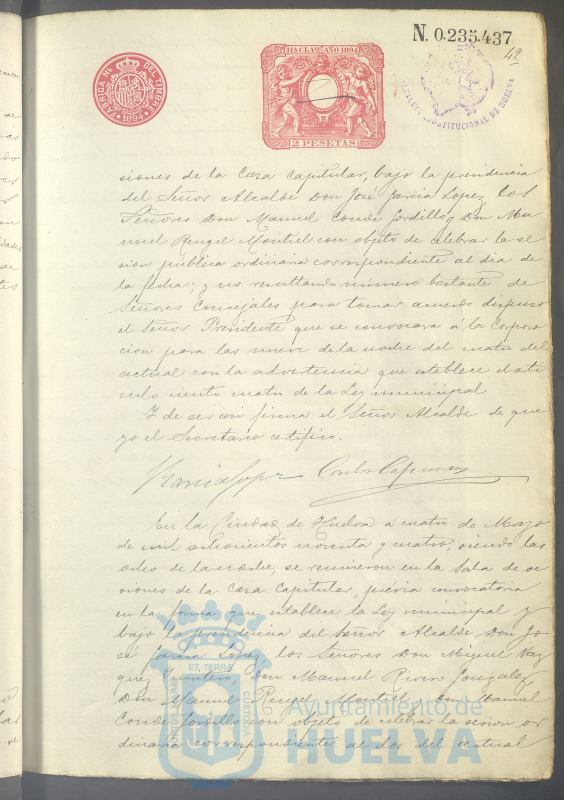 N. 0.235.437
42
11ª CLASE AÑO 1894
2 PESETAS
FABRICA NL. DEL TIMBRE
1894
ALCALDIA CONSTITUCIONAL DE HUELVA
siones de la Casa Capitular, bajo la presidencia
del Señor Alcalde Don José Garcia Lopez, los
Señores Don Manuel Conde Gordillo, Don Ma
nuel Rengel Montiel con objeto de celebrar la se
sion pública ordinaria correspondiente al dia de
la fecha; y no resultando número bastante de
Señores Concejales para tomar acuerdo dispuso
el Señor Presidente que se convocara á la Corpora
cion para las nueve de la noche del cuatro del
actual con la advertencia que establece el arti
culo ciento cuatro de la Ley municipal
Y de ser asi firma el Señor Alcalde de que
yo el Secretario certifico.
Garcia Lopez
En la Ciudad de Huelva a cuatro de Marzo
de mil ochocientos noventa y cuatro, siendo las
de la noche, se reunieron en la Sala de se
siones de la Casa Capitular, prévia convocatoria
en la forma que establece la Ley municipal y
bajo la presidencia del Señor Alcalde Don Jo
sé Garcia Lopez, los Señores Don Miguel Vaz
quez Quintero, Don Manuel Rivero Gonzalez
Don Manuel Rengel Montiel, Don Manuel
Conde Gordillo con objeto de celebrar la sesion or
dinaria correspondiente al dos del actual
ET TERRÆ
CUSTODIA
Ayuntamiento de
HUELVA